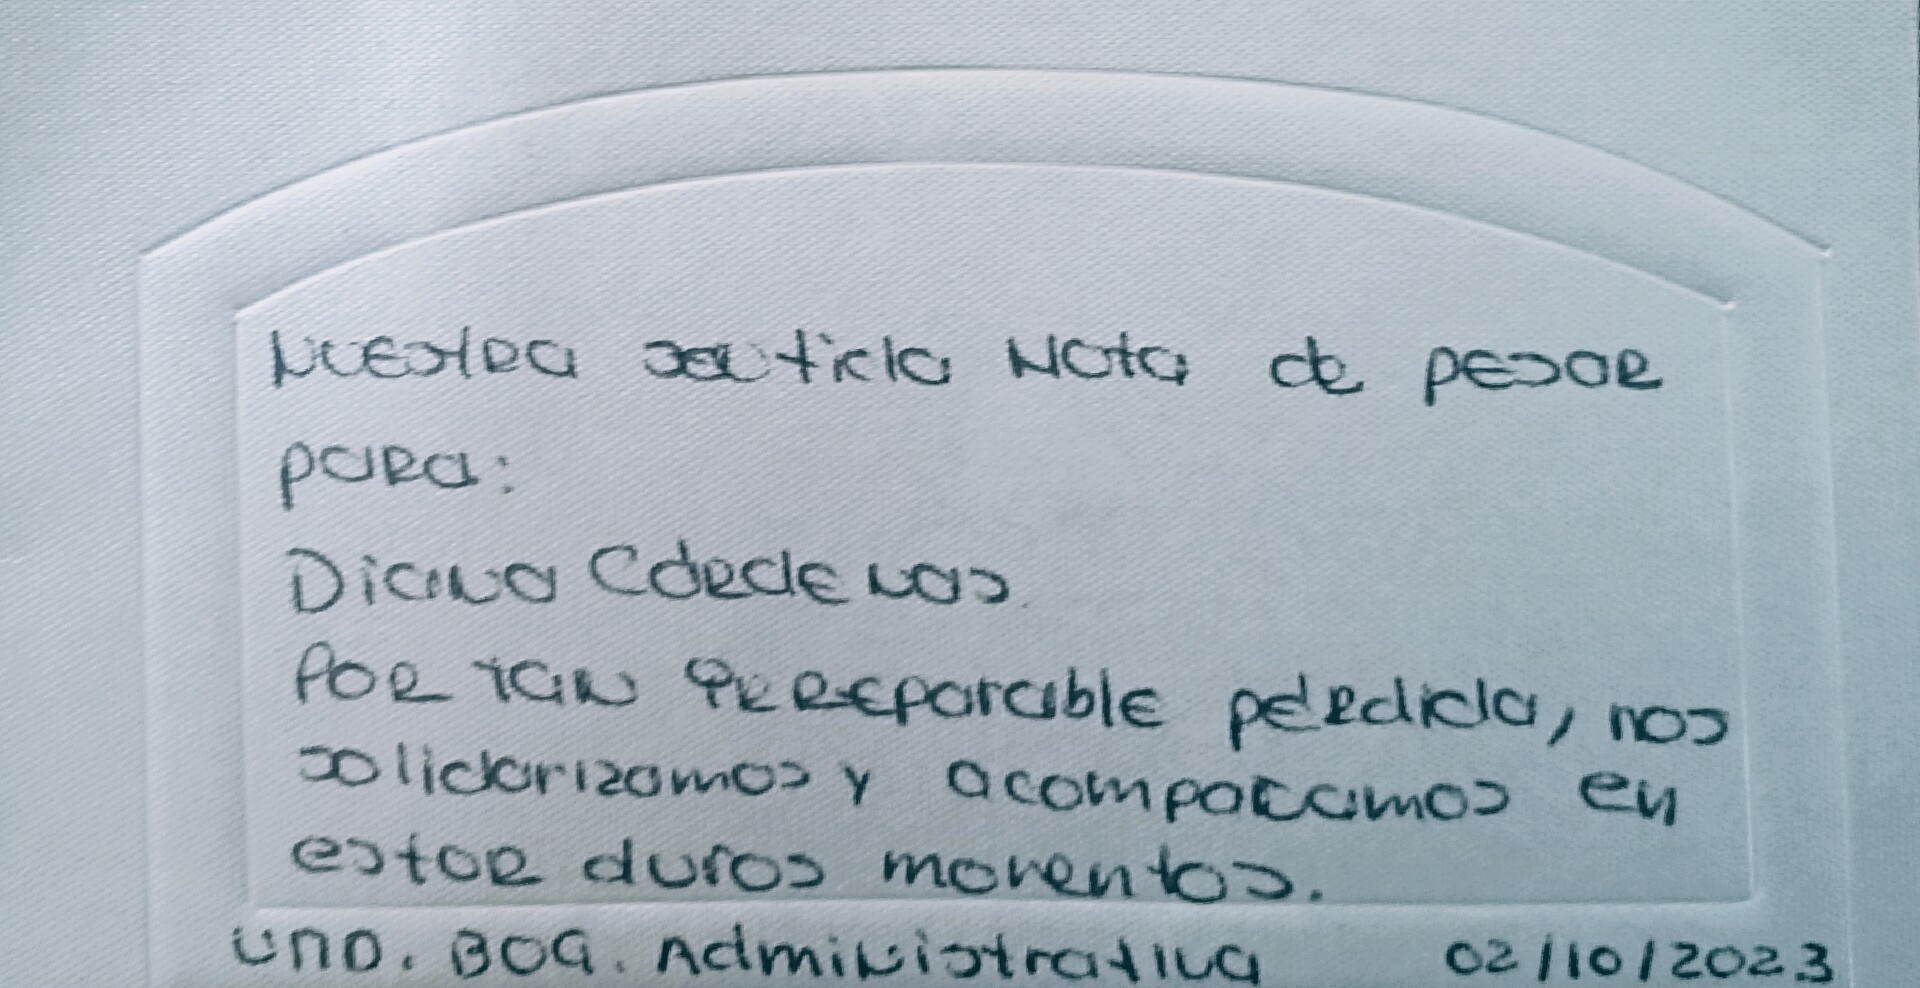 Nuestra sentida Nota de pesar
para:
Diana Cárdenas
Por tan irreparable pérdida, nos
solidarizamos y acompañamos en
estos duros momentos.
UND. BOG. Administrativa 02/10/2023